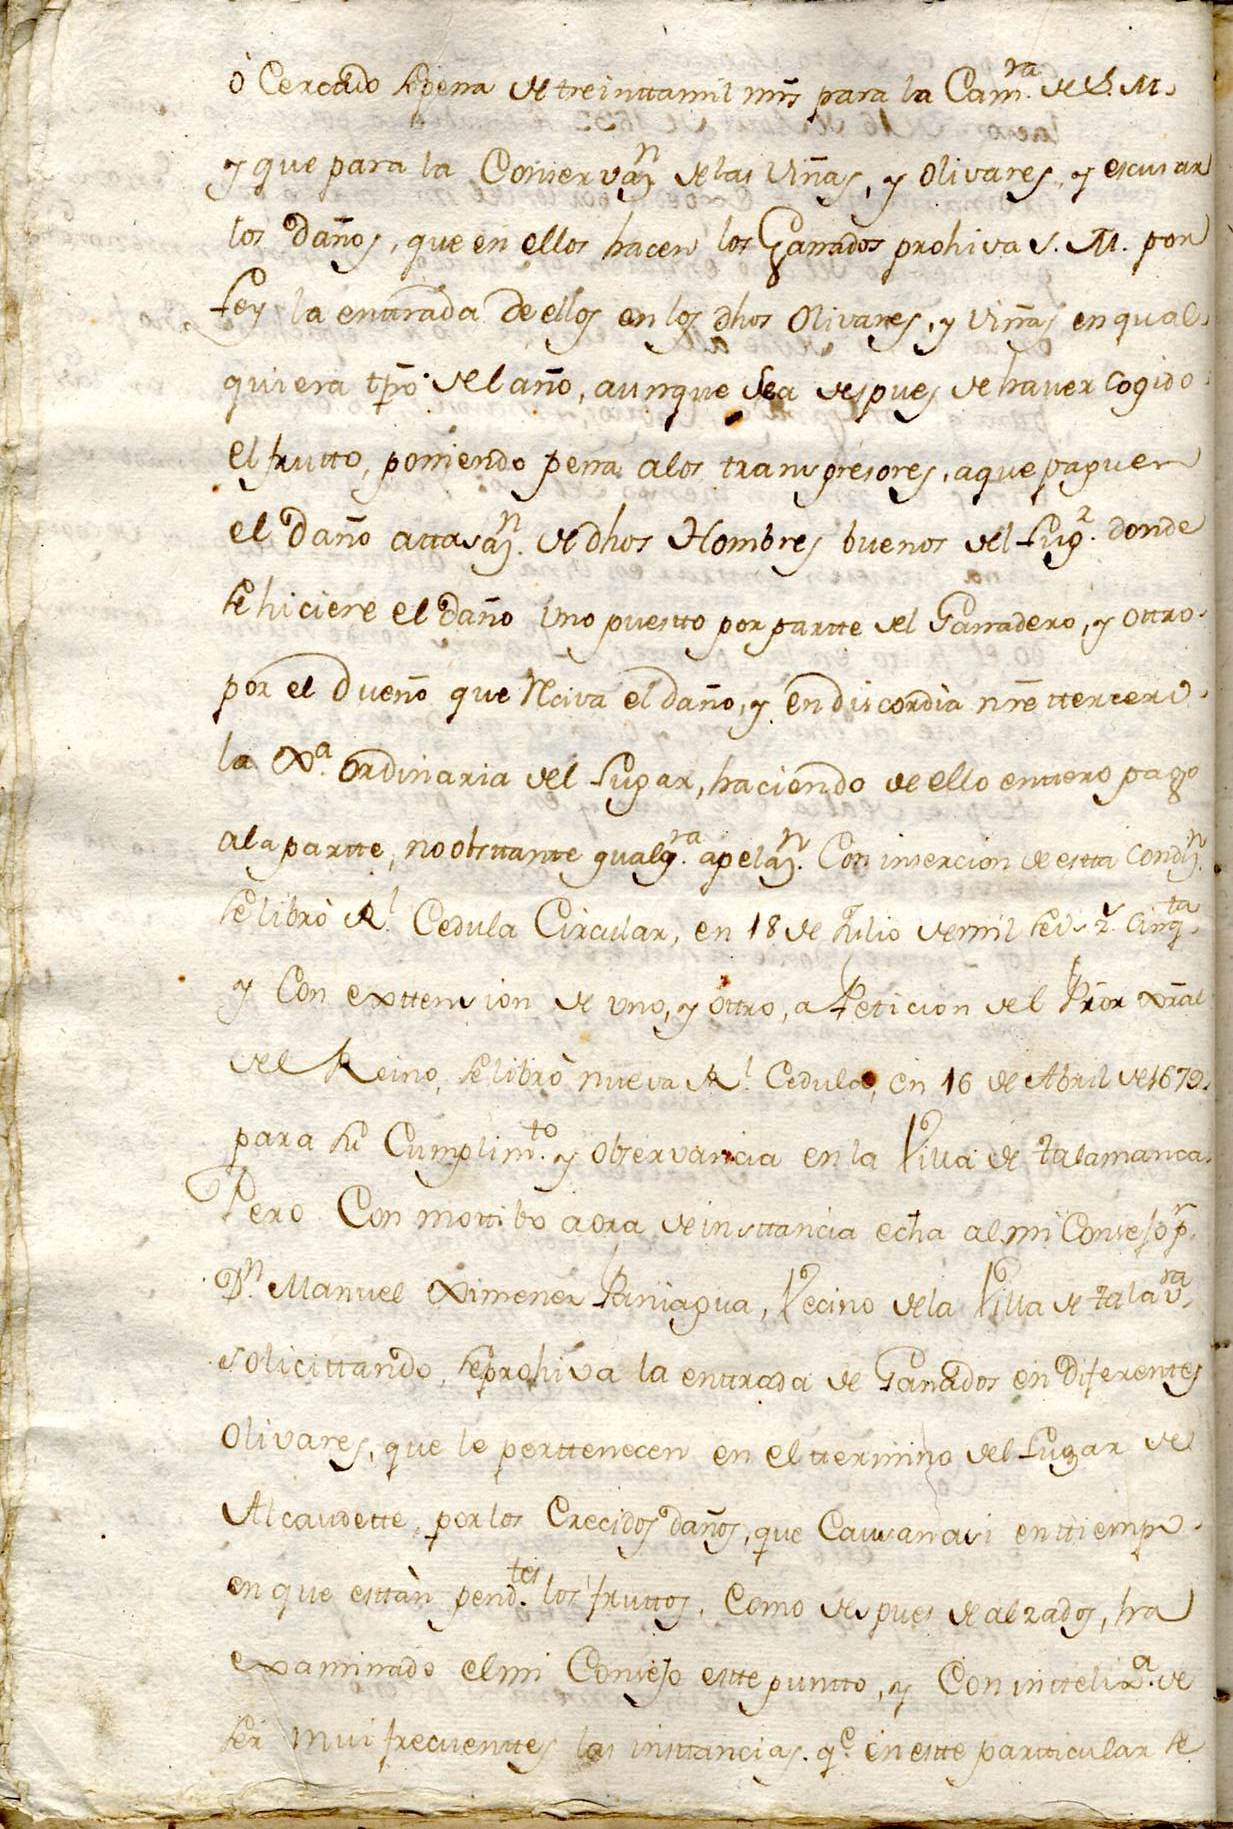 ò Cercado sepena de treinttamil mrs̃ para la Cam.ra de S. M.
y que para la Conservaz.n delas Viñas, y Olivares, y escusar
los Daños, que en ellos hacen los Ganados prohiva S. M. por
Ley la enttrada de ellos en los dhos Olivares, y Viñas en qual-
quiera tp̃o. del año, aunque sea despues de haver cogido
el frutto, poniendo pena alos transgresores, aque paguen
el Daño attasaz.n de dhos Hombres buenos del Lug.r donde
se hiciere el daño Uno puestto por partte del Ganadero, y ottro
por el Dueño que Reciva el daño, y en discordia nr̃e ttercero
la Xa. Ordinaria del Lugar, haciendo de ello enttero pago
ala partte, no obsttante qualq.ra apelaz.n Con insercion de estta Condiz.n
se librò R.l Cedula Circular, en 18 de Julio de mil
y Con exttension de uno, y ottro, a Peticion del Pr̃or Xr̃al
del Reino, se librò nueva R.l Cedula, en 16 de Abril de 1679.
para su Cumplim.to y observancia en la Villa de Talamanca.
Pero Con mottibo aora de insttancia echa al mi Consejo p.r
D.n Manuel Ximenez Paniagua, Vecino dela Villa de Talav.ra
solicittando, se prohiva la enttrada de Ganados en Diferentes
Olivares, que le perttenecen en el ttermino del Lugar de
Alcaudette, por los Crecidos daños, que Causan asi en ttiempo
en que esttàn pend.tes los fruttos, Como despues de alzados, ha
examinado el mi Consejo estte puntto, y Con intteliX.a de
ser mui frecuenttes las insttancias. q.e en estte partticular se